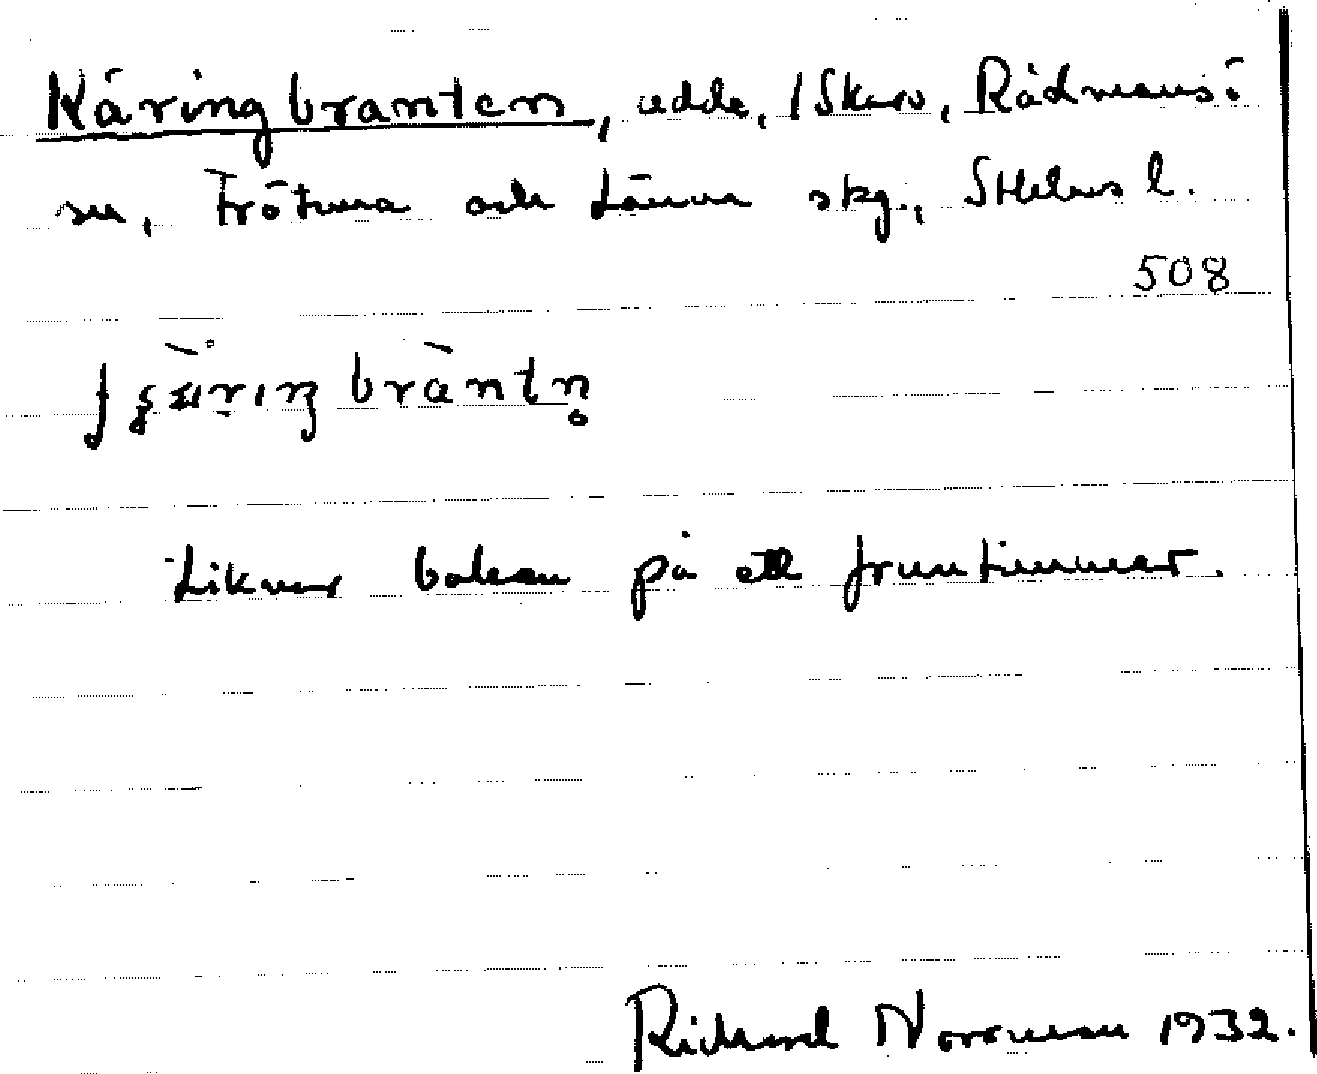 Käringbranten, udde, i Skarv, Rådmansö
sn, Frötuna och Länna skg., Sthlms l.
508
bràntn̥
Liknar baken på ett fruntimmer.
Rickard Noreman 1932.